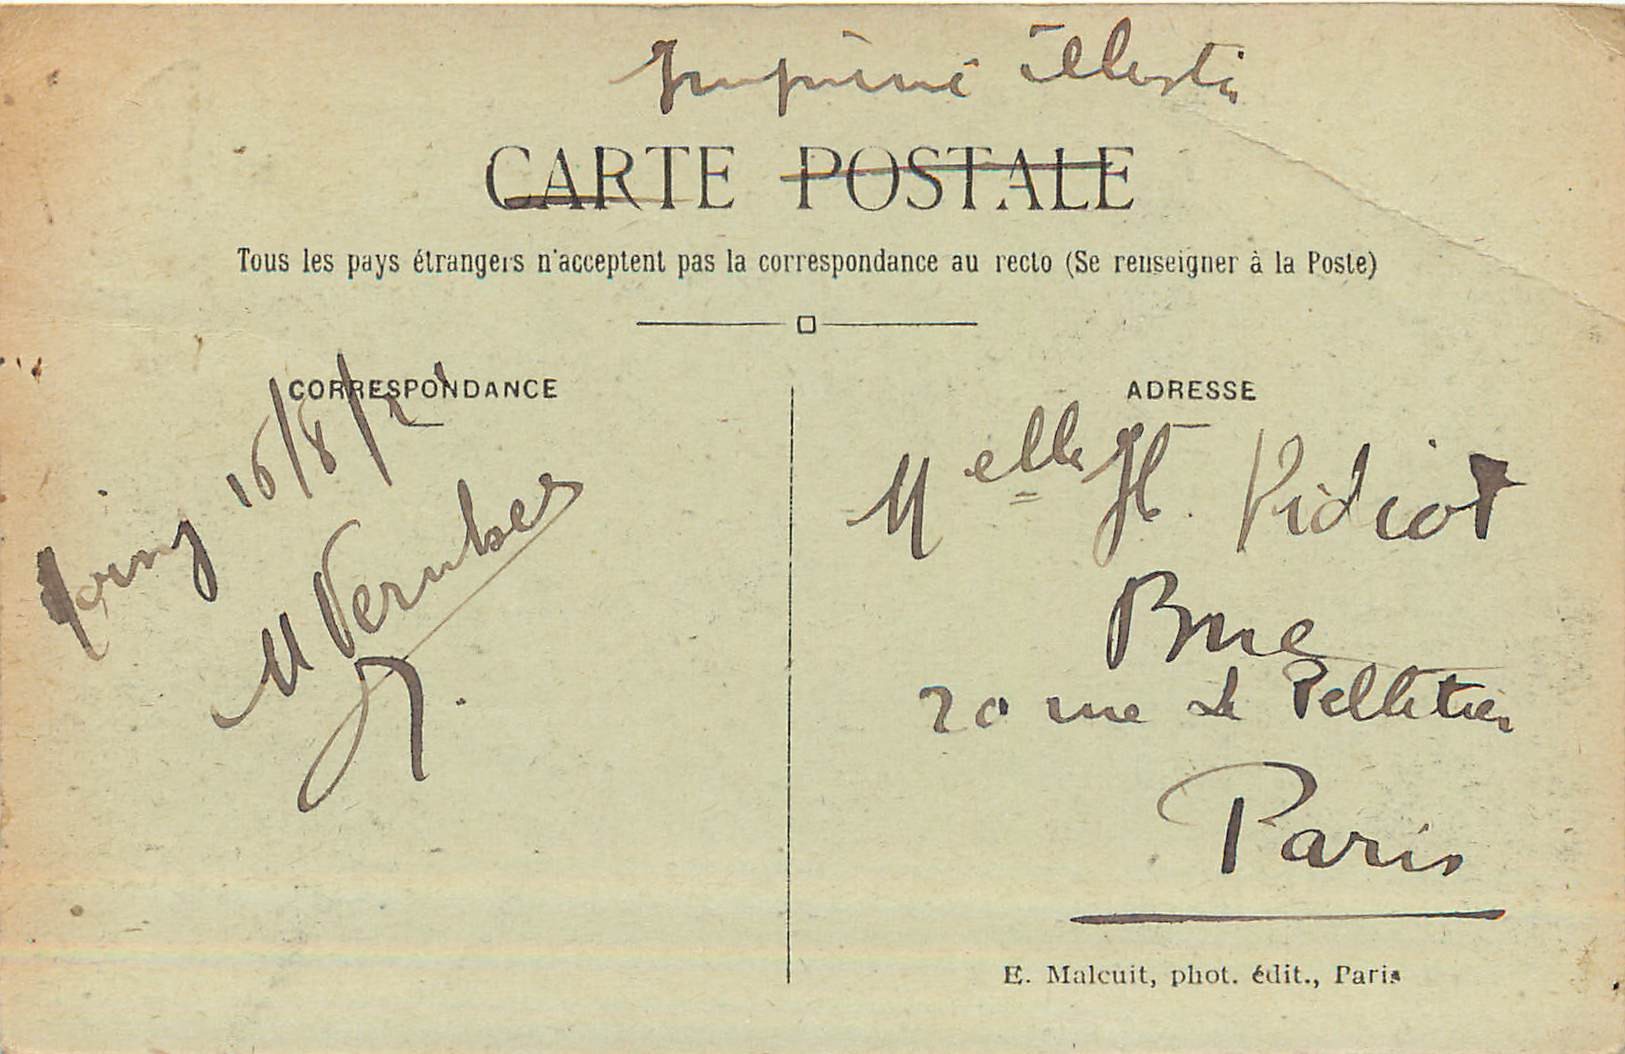 Imprimé illustré
CARTE POSTALE
Tous les pays étrangers n'acceptent pas la correspondance au recto (Se renseigner à la Poste)
CORRESPONDANCE
16/8/2
M
ADRESSE
Melle H. Vidiot
20 rue Le Pelletier
Paris
E. Malcuit, phot. édit., Paris